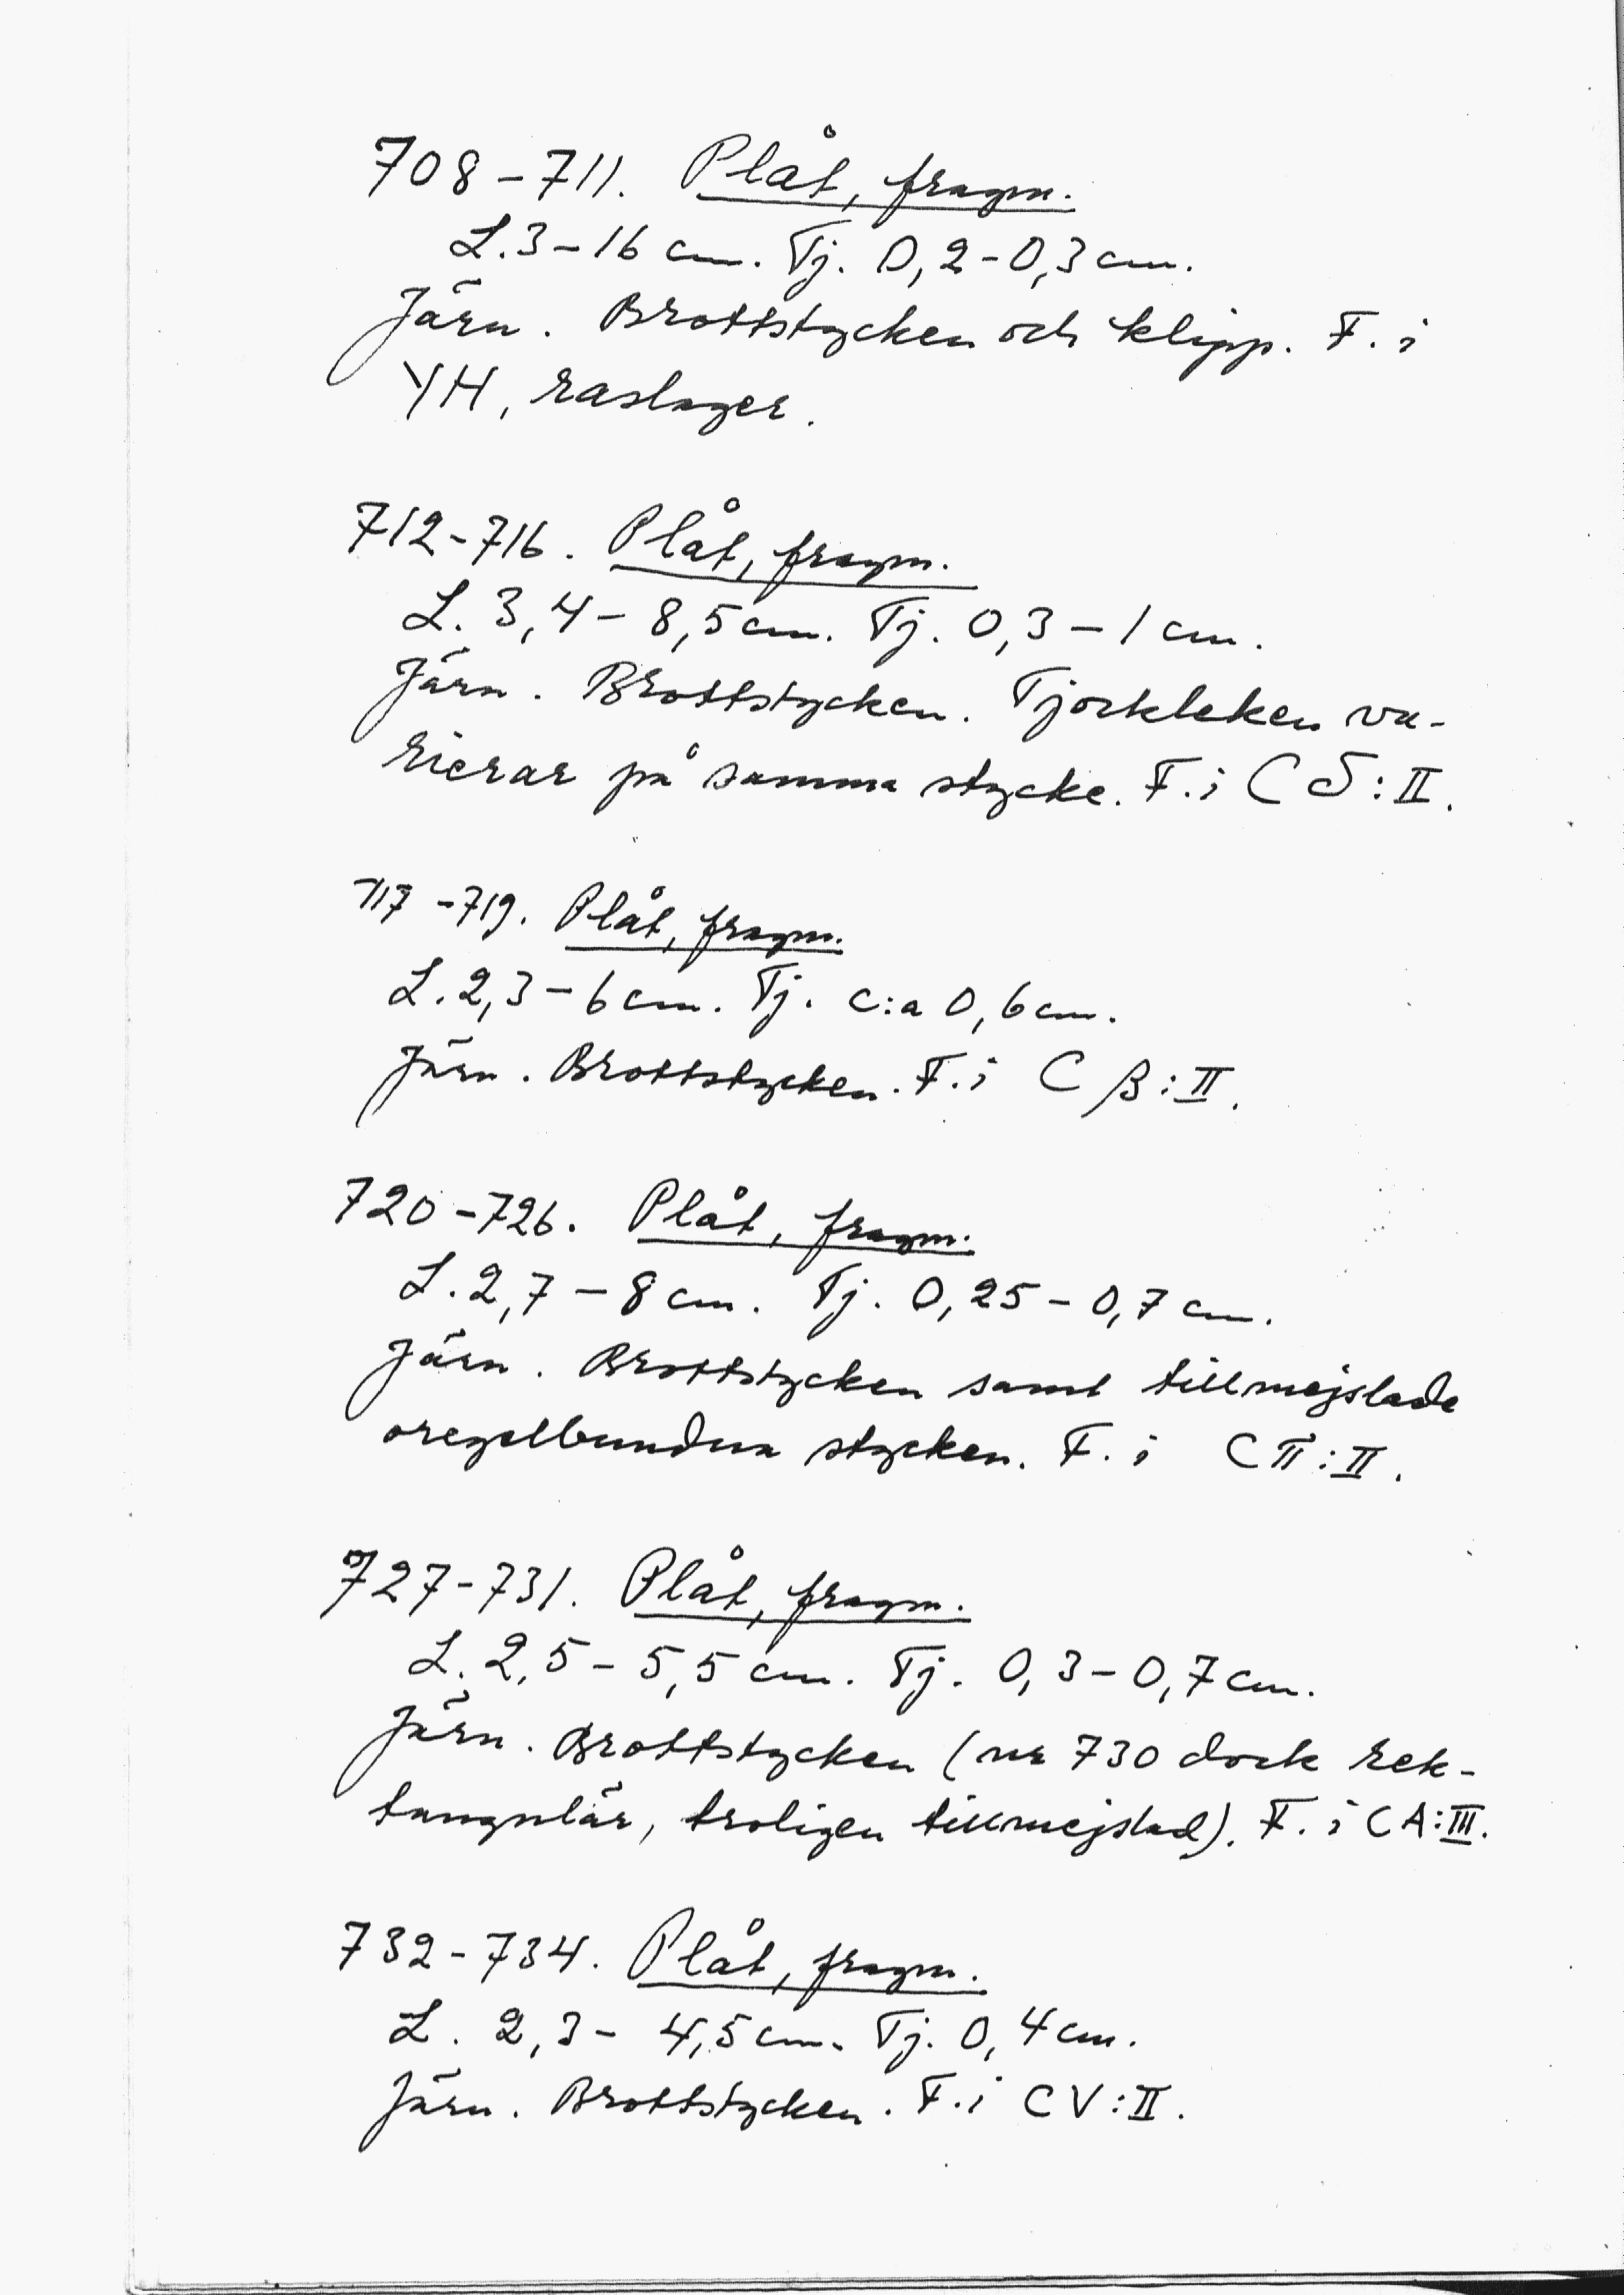 708-711. Plåt, fragm.
L. 3-16 cm. Tj. 0,2-0,3 cm.
Järn. Brottstycken och klipp. F. i
YH, raslager.
712-716. Plåt, fragm.
L. 3,4-8,5 cm. Tj. 0,3-1 cm.
Järn. Brottstycken. Tjockleken va-
rierar på samma stycke. F. i C δ:II.
717-719. Plåt, fragm.
L. 2,3-6 cm. Tj. c:a 0,6 cm.
Järn. Brottstycken. F. i C β:II.
720-726. Plåt, fragm.
L. 2,7-8 cm. Tj. 0,25-0,7 cm.
Järn. Brottstycken samt tillmejslade
oregelbundna stycken. F. i C π:II.
727-731. Plåt, fragm.
L. 2,5-5,5 cm. Tj. 0,3-0,7 cm.
Järn. Brottstycken (nr 730 dock rek-
tangulär, troligen tillmejslad). F. i CA:III.
732-734. Plåt, fragm.
L. 2,3-4,5 cm. Tj. 0,4 cm.
Järn. Brottstycken. F. i CV:II.